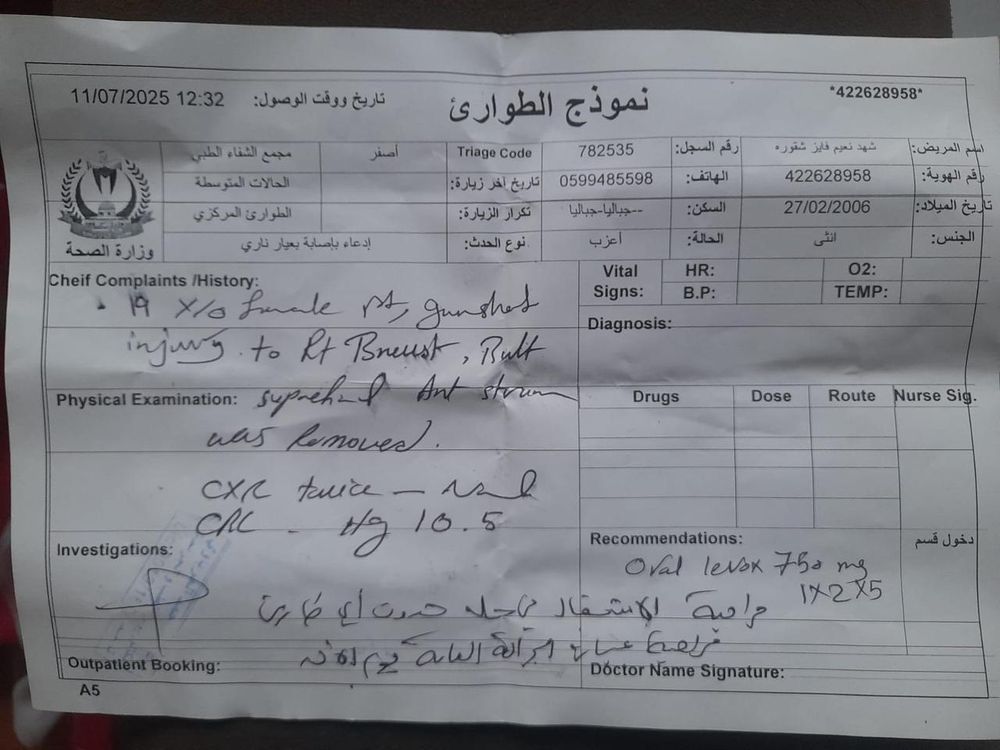 *422628958*
نموذج الطوارئ
تاريخ ووقت الوصول: 11/07/2025 12:32
اسم المريض: شهد نعيم فايز شقوره رقم السجل: 782535 Triage Code أصفر مجمع الشفاء الطبي
رقم الهوية: 422628958 الهاتف: 0599485598 تاريخ آخر زيارة: الحالات المتوسطة
تاريخ الميلاد: 27/02/2006 السكن: --جباليا-جباليا تكرار الزيارة: الطوارئ المركزي
الجنس: انثى الحالة: أعزب نوع الحدث: إدعاء بإصابة بعيار ناري
وزارة الصحة
Cheif Complaints /History:
19 Y/o female Pt, gunshot
injury to Rt Breast, Bult
Vital Signs: HR: O2:
B.P: TEMP:
Diagnosis:
Physical Examination: Ant
was Removed.
CXR twice –
CBC - Hg 10.5
Drugs Dose Route Nurse Sig.
Investigations:
Recommendations: دخول قسم
Oral levox 750 mg
1X2X5
مراجعة الاستقبال حدوث أي طارئ
مراجعة الجراحة العامة يوم
Outpatient Booking:
Doctor Name Signature:
A5